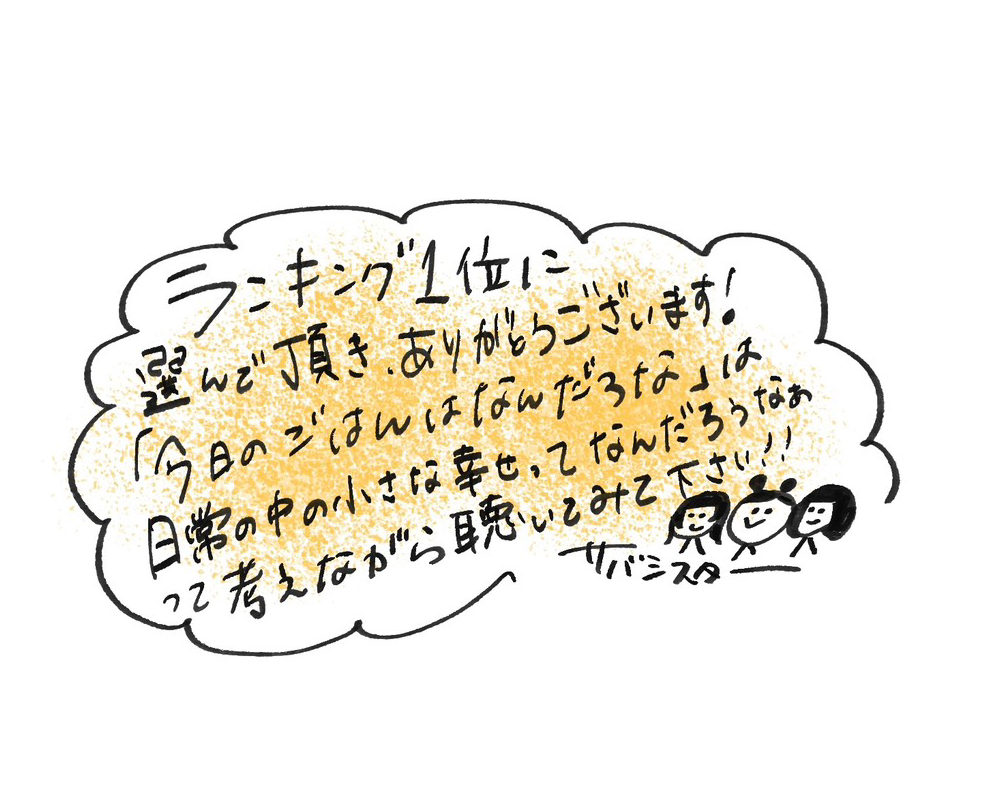 ランキング1位に
選んで頂き、ありがとうございます!
「今日のごはんはなんだろな」は
日常の中の小さな幸せってなんだろうなぁ
って考えながら聴いてみて下さい!!
サバシスター